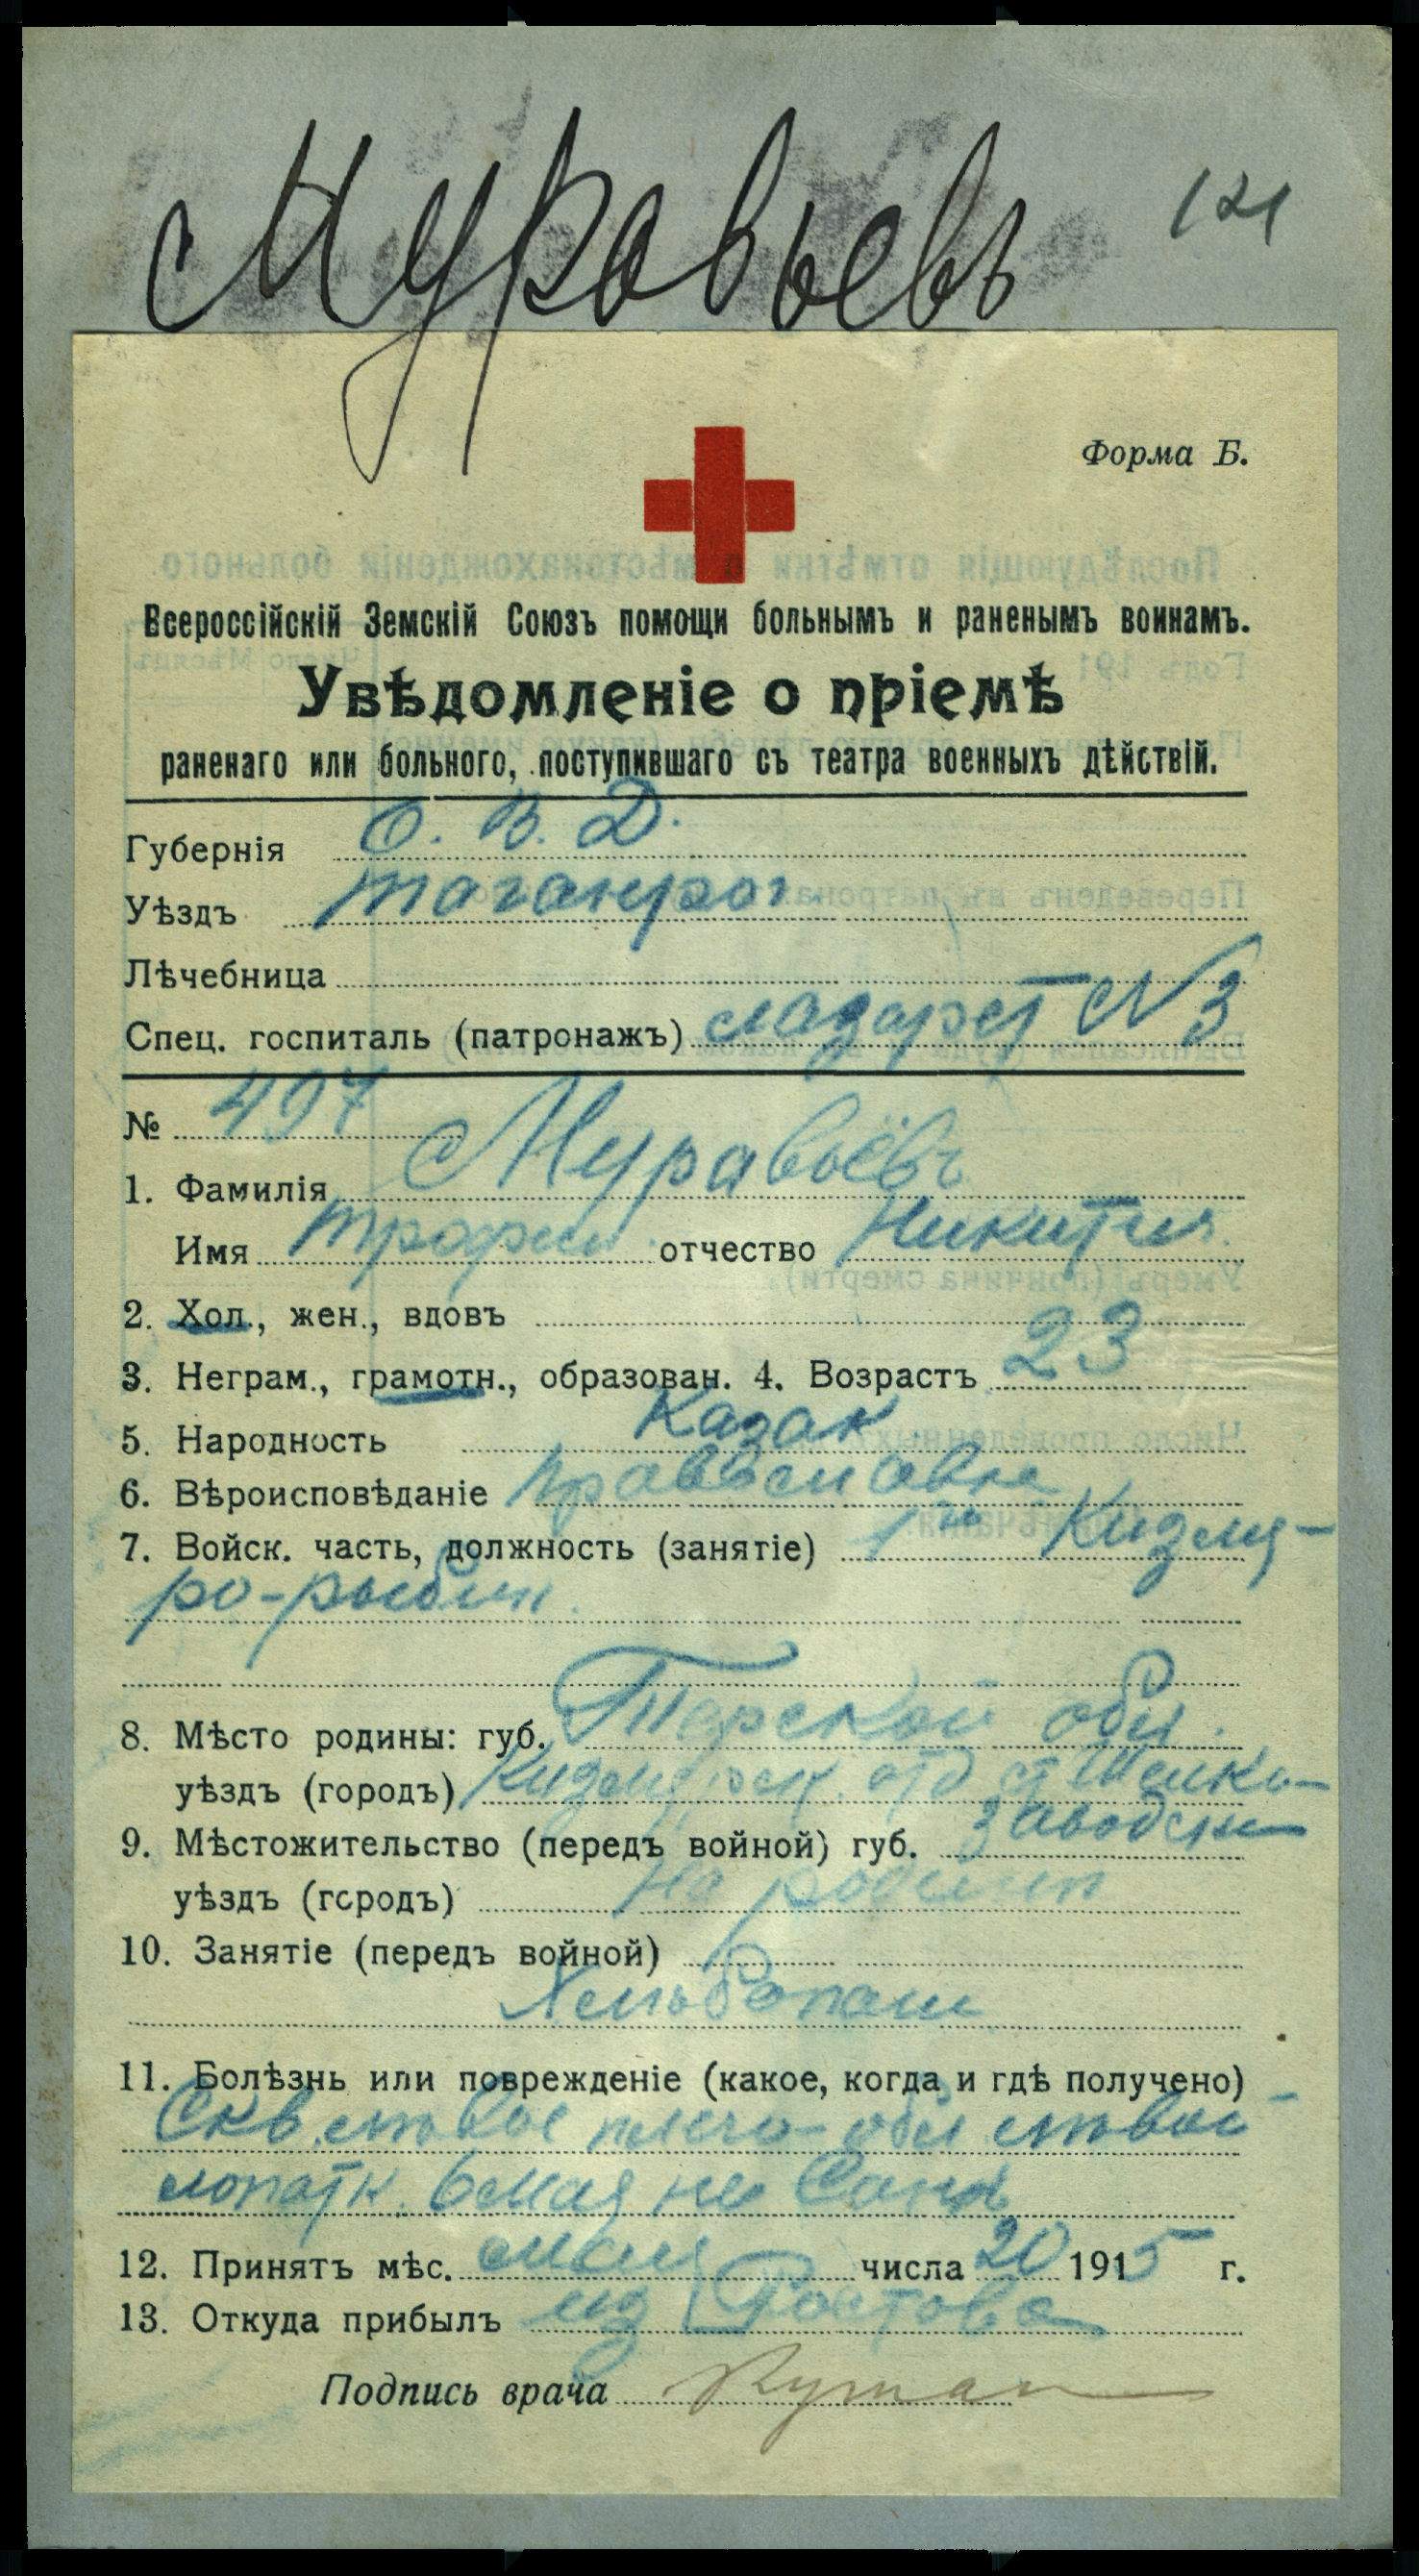 Муравьевъ
121
Форма Б.
Всероссійскій Земскій Союзъ помощи больнымъ и раненымъ воинамъ.
Увѣдомленіе о пріемѣ
раненаго или больного, поступившаго съ театра военныхъ дѣйствій.
Губернія О. В. Д.
Уѣздъ Таганрог
Лѣчебница
Спец. госпиталь (патронажъ) лазарет №3
№ 497
1. Фамилія Муравьёвъ
Имя Трофим отчество Никитич
2. Хол., жен., вдовъ
3. Неграм., грамотн., образован. 4. Возрастъ 23
5. Народность Казак
6. Вѣроисповѣданіе православн
7. Войск. часть, должность (занятіе) 1й Кизля-
ро-
8. Мѣсто родины: губ. Терской обл.
уѣздъ (городъ) Кизлярск. отд ст Шелко-
заводск
9. Мѣстожительство (передъ войной) губ.
уѣздъ (городъ) на родине
10. Занятіе (передъ войной)
Хлѣбопаш
11. Болѣзнь или поврежденіе (какое, когда и гдѣ получено)
Скв. лѣвое плечо- обл лѣвой
лопатк. 6 мая на Сане
12. Принятъ мѣс. мая числа 20 1915 г.
13. Откуда прибылъ из Ростова
Подпись врача